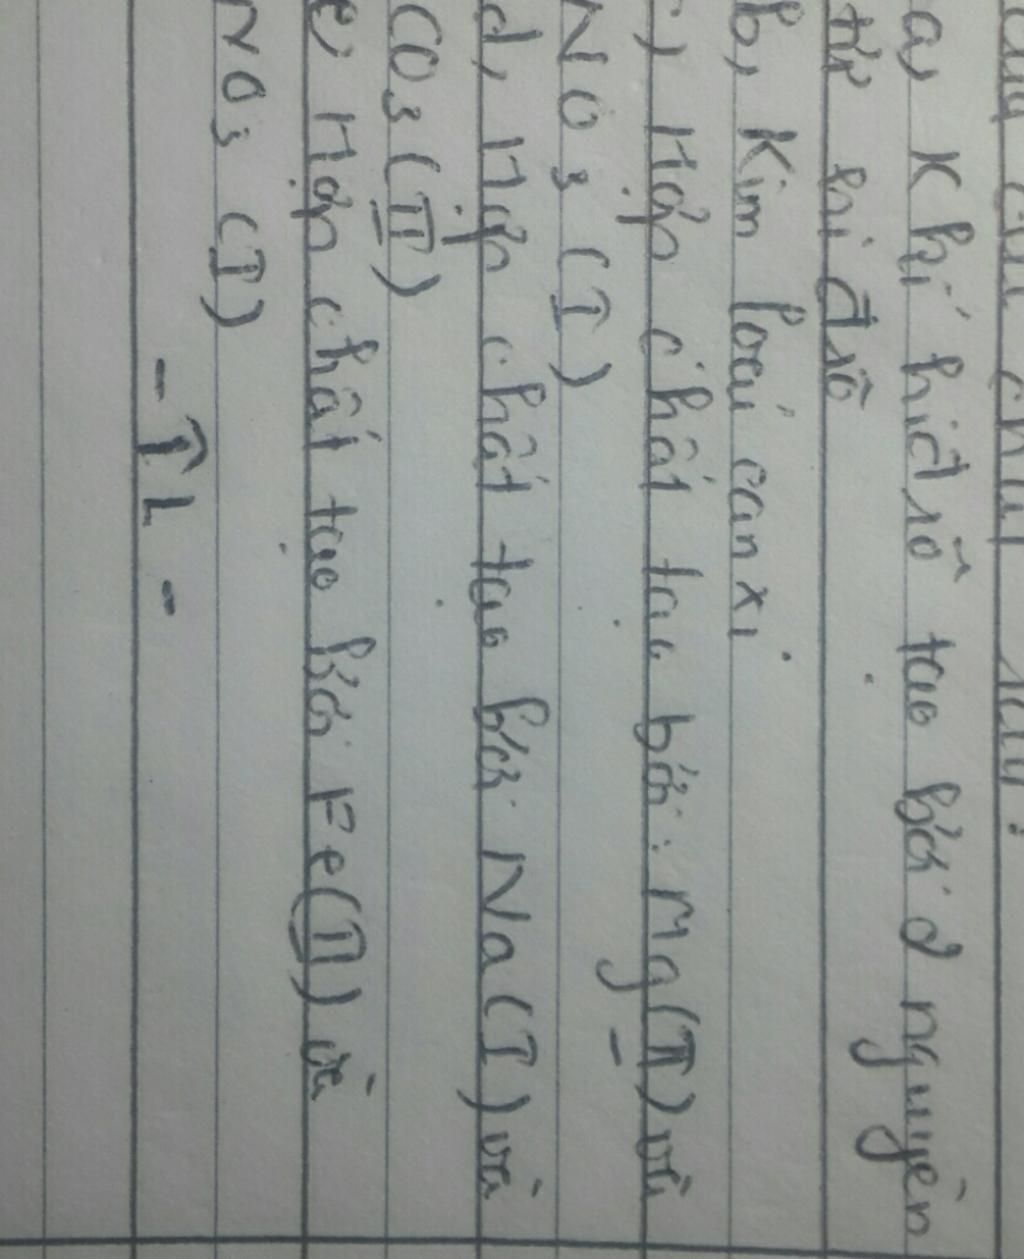 a, Khí hiđrô tạo bởi 2 nguyên
tử hiđrô
b, Kim loại canxi
c, Hợp chất tạo bởi: Mg(II) và
NO3 (I)
d, Hợp chất tạo bởi Na(I) và
CO3(II)
e, Hợp chất tạo bởi Fe(II) và
NO3 (I)
- TL -